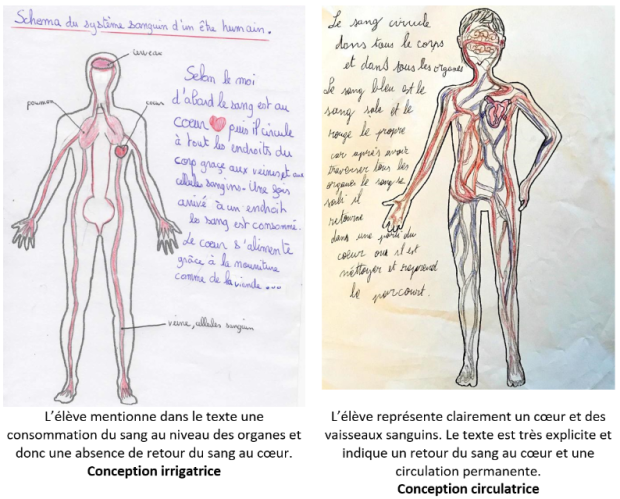 Schema du système sanguin d'un être humain.
cerveau
poumon
cœur
Selon le moi
d'abord le sang est au
cœur puis il circule
à tout les endroits du
corp grâce aux veines et aux
cellules sangins. Une fois
arrivé à un endroit
le sang est consommé.
Le cœur s'alimente
grâce à la nourriture
comme de la viande...
veine, cellules sanguin
L'élève mentionne dans le texte une
consommation du sang au niveau des organes et
donc une absence de retour du sang au cœur.
Conception irrigatrice
Le sang circule
dans tous le corps
et dans tous les organes
Le sang bleu est le
sang sale et le
rouge le propre
car après avoir
traverser tous les
organes le sang se
sali il
retourne
dans une partie du
coeur ou il est
nettoyer et reprend
le parcourt.
L'élève représente clairement un cœur et des
vaisseaux sanguins. Le texte est très explicite et
indique un retour du sang au cœur et une
circulation permanente.
Conception circulatrice